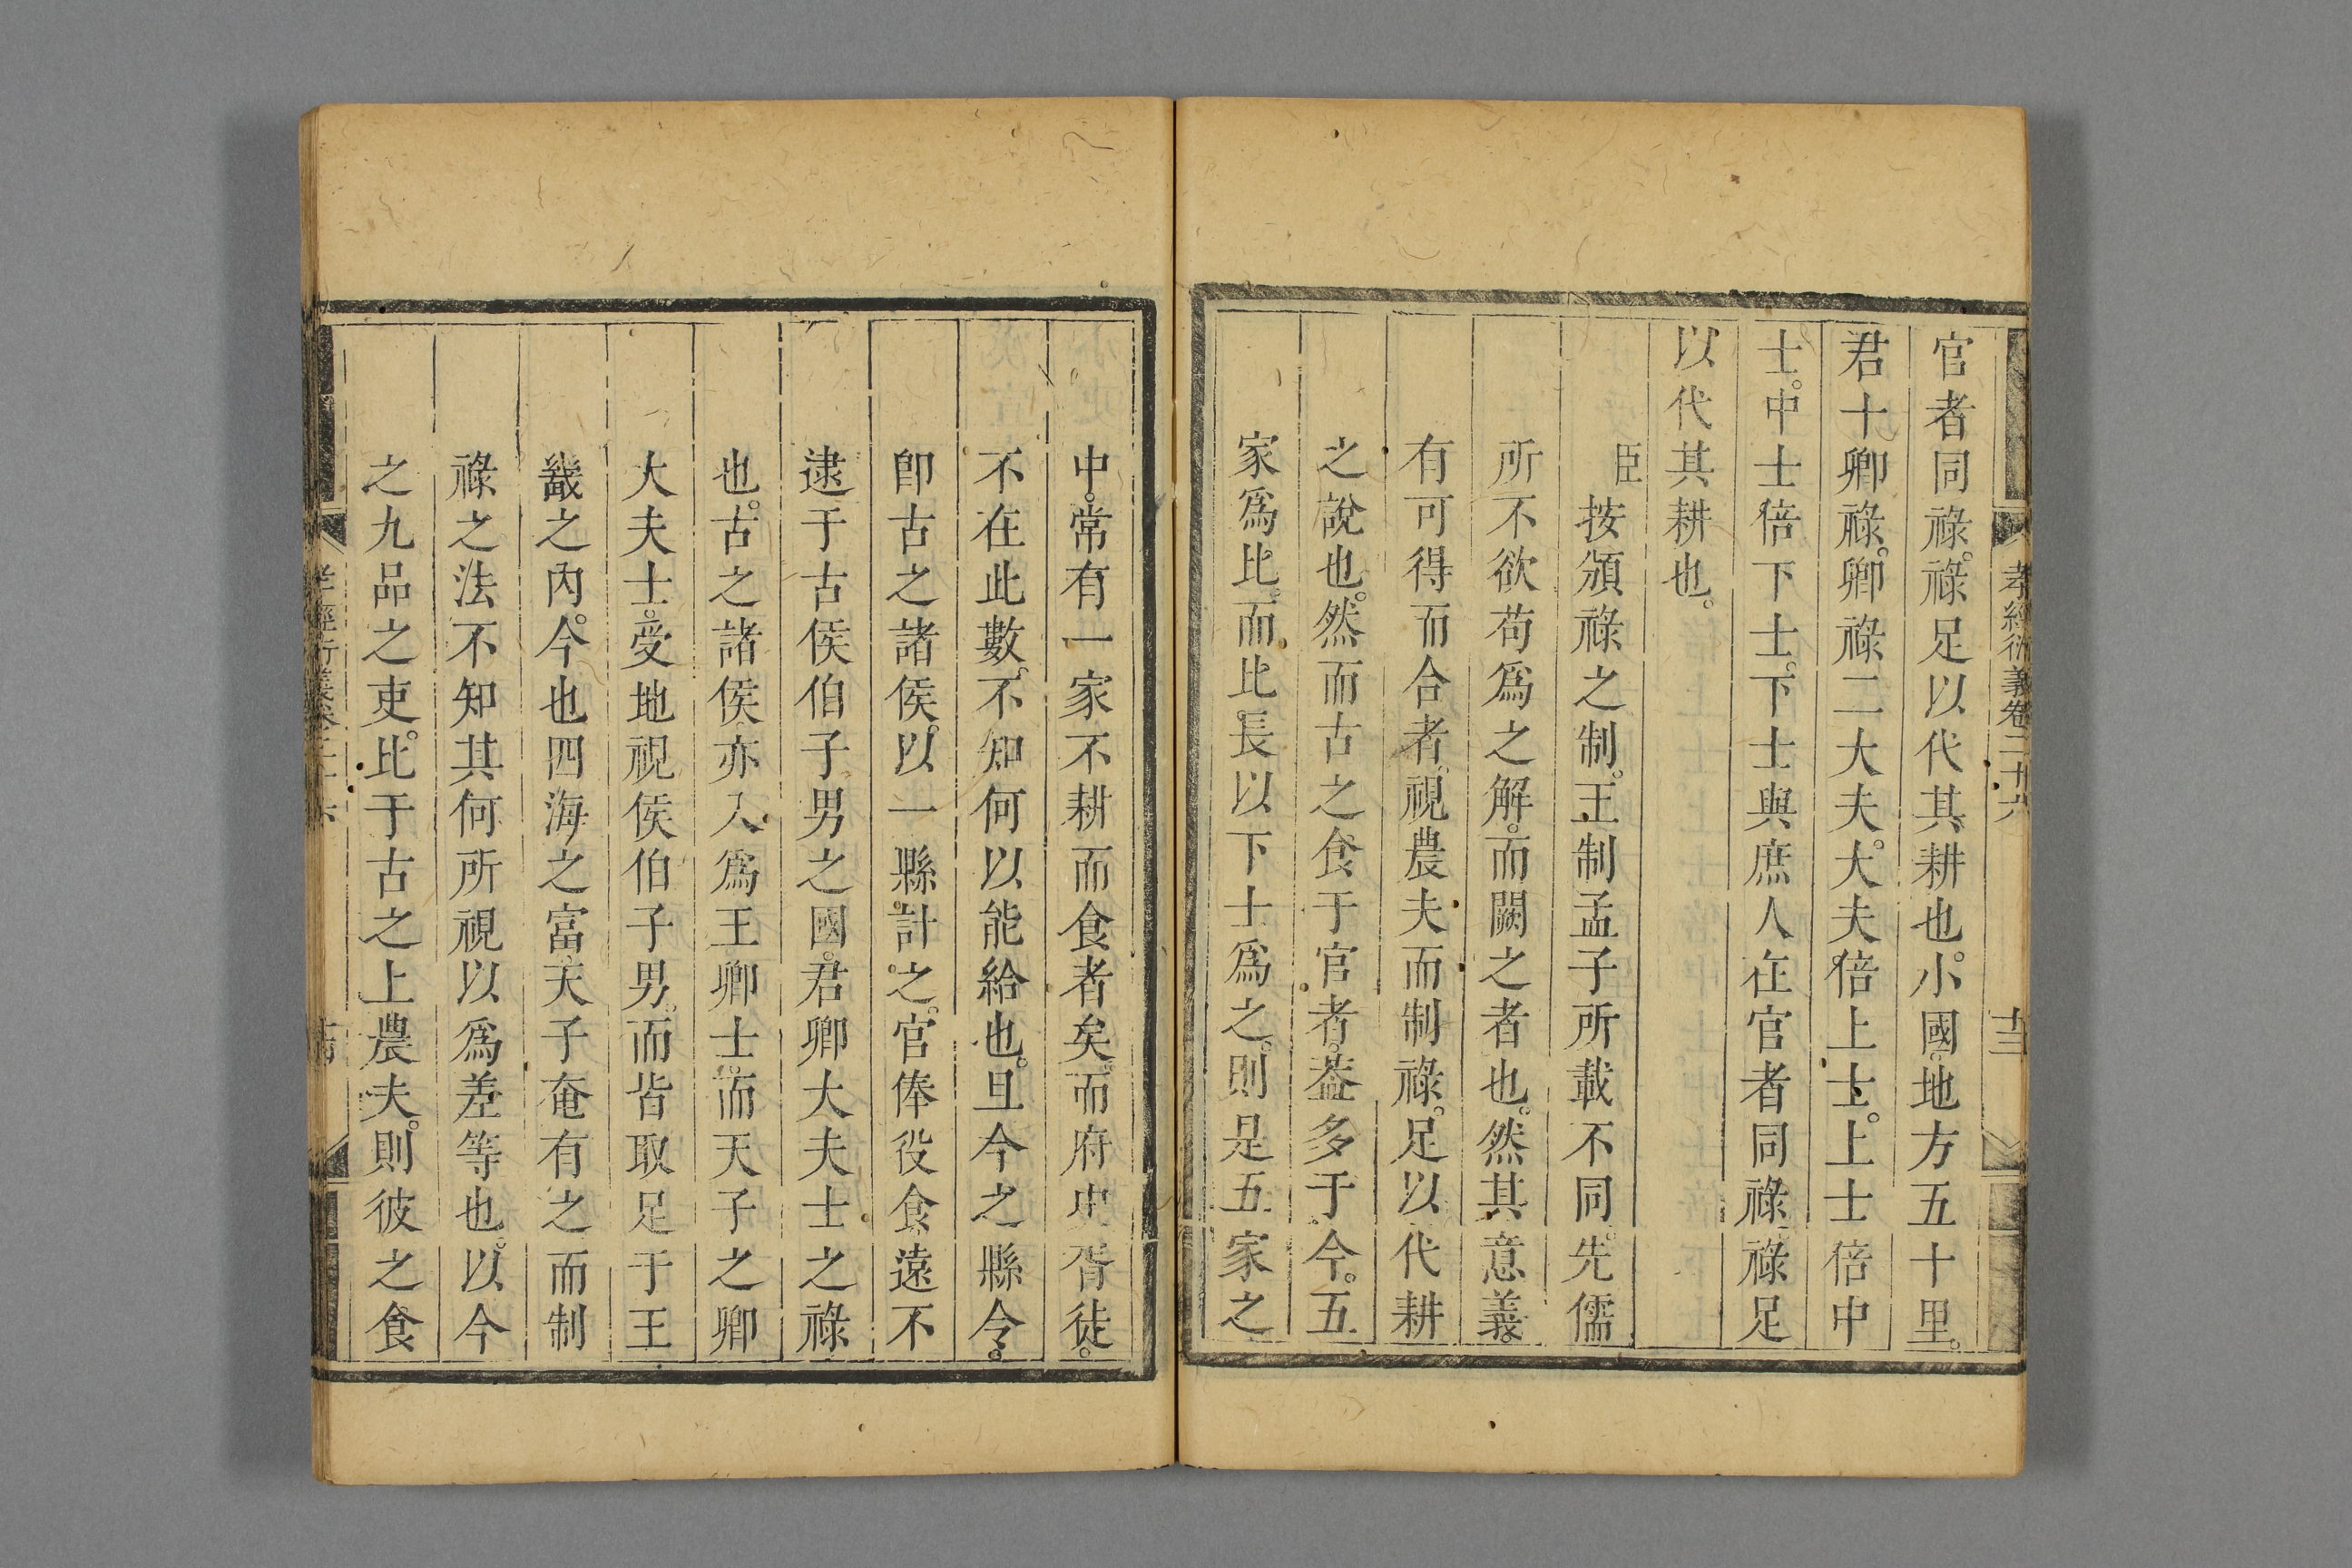 孝經衍義卷二十六
十三
官者同祿。祿足以代其耕也。小國地方五十里。
君十卿祿。卿祿二大夫。大夫倍上士。上士倍中
士。中士倍下士。下士與庶人在官者同祿。祿足
以代其耕也。
臣按頒祿之制。王制孟子所載不同。先儒
所不欲苟爲之解。而闕之者也。然其意義。
有可得而合者。視農夫而制祿。足以代耕
之說也。然而古之食于官者。葢多于今。五
家爲比。而比長以下士爲之。則是五家之
中。常有一家不耕而食者矣。而府史胥徒。
不在此數。不知何以能給也。且今之縣令。
卽古之諸侯。以一縣計之。官俸役食。遠不
逮于古侯伯子男之國。君卿大夫士之祿
也。古之諸侯。亦入爲王卿士。而天子之卿
大夫士。受地視侯伯子男。而皆取足于王
畿之內。今也四海之富。天子奄有之。而制
祿之法。不知其何所視以爲差等也。以今
之九品之吏。比于古之上農夫。則彼之食
十四